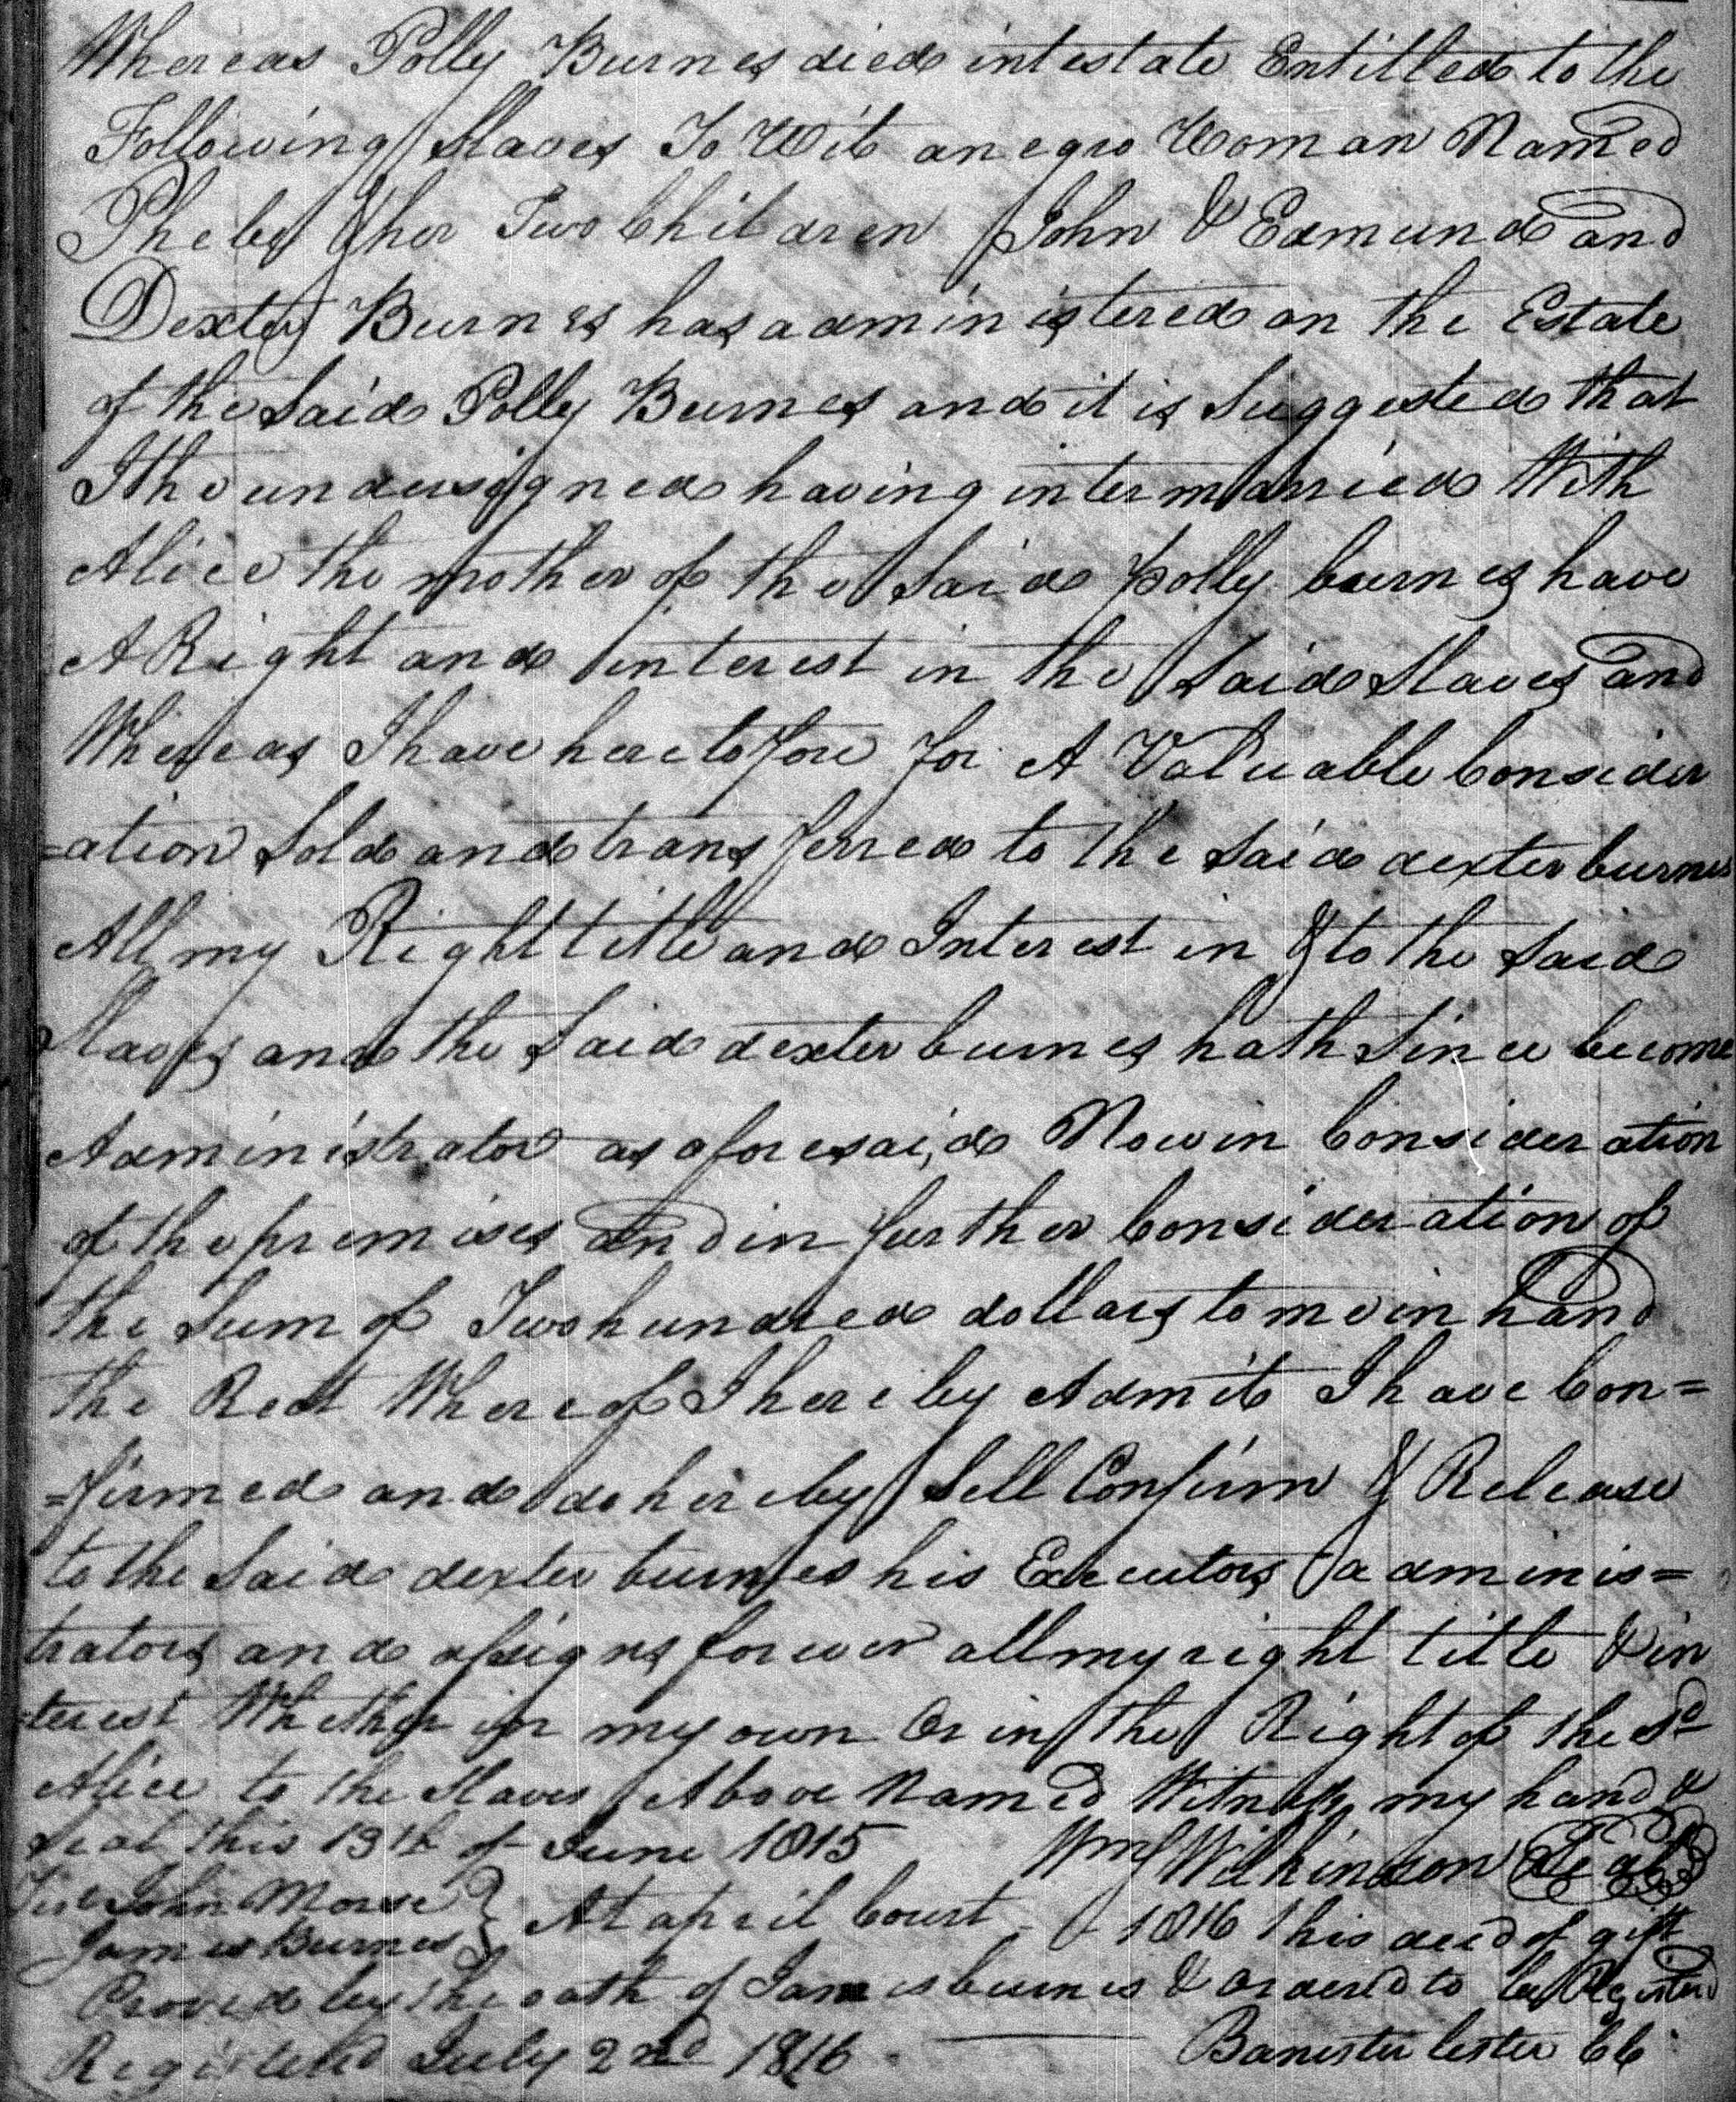 Whereas Polly Burnes died intestate Entitled to the
Following Slaves To Wit a negro Woman Named
Pheby & her Two Children John & Edmund and
Dexter Burnes has administered on the Estate
of the Said Polly Burnes and it is Suggested that
I the undersigned having intermarried With
Alice the mother of the Said polly burnes have
A Right and interest in the Said Slaves and
Whereas I have heretofore for A Valuable Consider
=ation Sold and transferred to the Said dexter burnes
All my Right title and Interest in & to the Said
Slaves and the Said dexter burnes hath Since become
Administrator as aforesaid Now in Consideration
of the premises and in further Consideration of
the Sum of Two hundred dollars to me in hand
the Rect Whereof I hereby Admit I have Con=
=firmed and do hereby Sell Confirm & Release
to the Said dexter burnes his Executors adminis=
trators and assigns forever all my right title & in
=terest Whether in my own Or in the Right of the Sd
Alice to the Slaves Above Named Witness my hand &
Seal this 19th of June 1815 Wm Wilkinson Seal
Test John Morse
James Burnes } At april Court 1816 This deed of gift
Proved by the oath of James burnes & ordered to be Registered
Registered July 2nd 1816 Banester lester CC